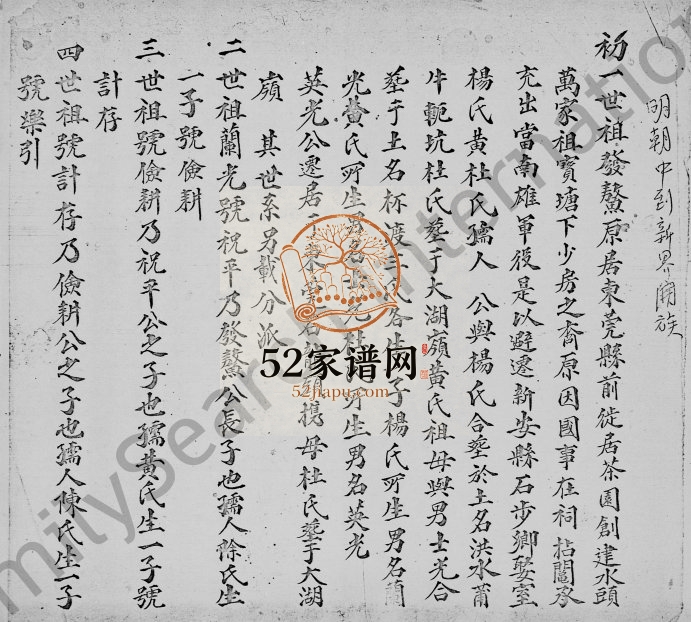 明朝中到新界開族
初一世祖發鰲原居東莞縣前徙居茶園創建水頭
萬家祖寶塘下少房之裔原因國事在祠拈鬮承
充出當南雄軍役是以避遷新安縣石步鄉娶室
楊氏黃杜氏孺人 公與楊氏合塟於土名洪水甫
牛軛坑杜氏塟于大湖嶺黃氏祖母與男士光合
塟于土名杯渡 氏各生 子楊氏所生男名蘭
光黃氏所生男名士光杜氏所生男名英光
英光公遷居 母杜氏塟于大湖
嶺 其世系另載分派
二世祖蘭光號祝平乃發鰲公長子也孺人陳氏生
一子號儉耕
三世祖號儉耕乃祝平公之子也孺黃氏生一子號
計存
四世祖號計存乃儉耕公之子也孺人陳氏生一子
號樂引
52家谱网
52jiapu.com
FamilySearch International